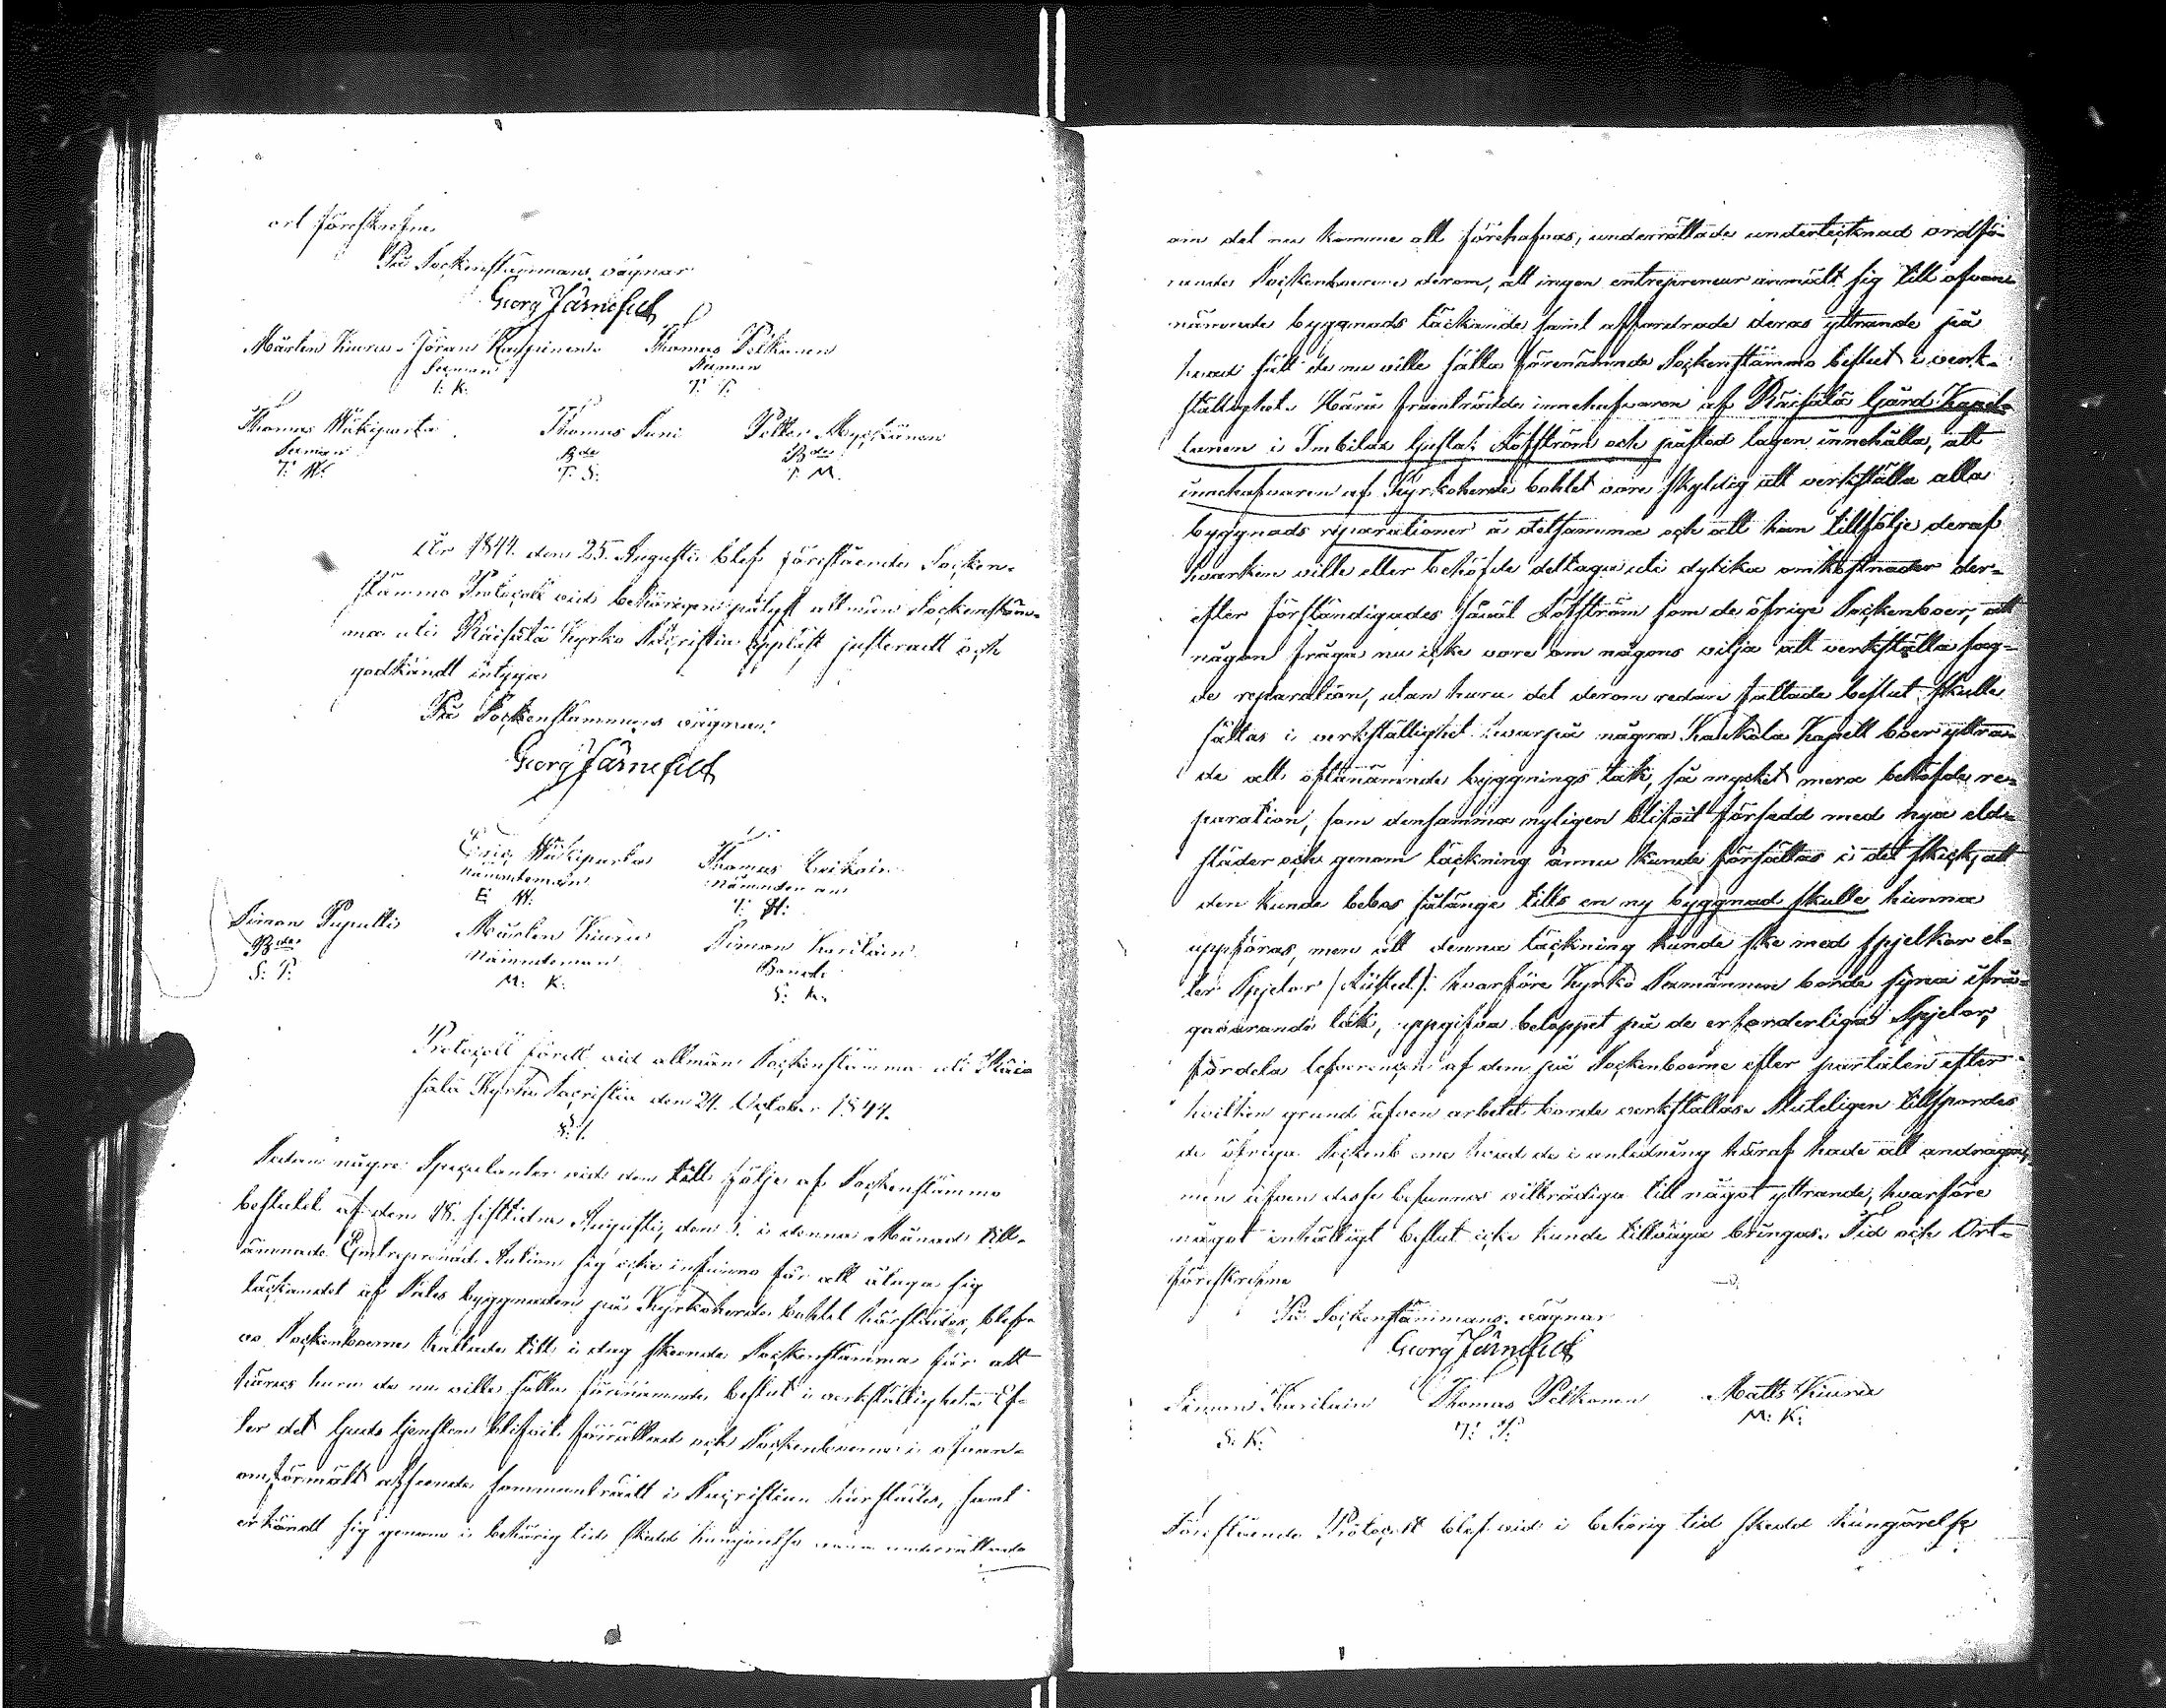 ort föreskrefne
På Sockenstämmans vägnar
Georg Järnefelt
Mårten Kiuru Jöran Kaspinen Thomas Pelkonen
Sexman Sexman
I. K. T. P.
Thomas Mäkiparta Thomas Suni Petter Myöhänen
Sexman Bde Bde
T. M. T. S. P. M.
År 1844 den 25 Augusti blef föreståendе Socken-
stämmo Protocoll vid behörigen pålyst allmän Sockenstäm-
ma uti Räisälä Kyrko Sacristia uppläst justeradt och
godkändt intygar
På Sockenstämmans vägnar:
Georg Järnefelt
Eric Mäkiparta Thomas
Nämndeman Nämndeman
E. M. T. H.
Simon Pupulli Mårten Kiuru Simon Karilain
Bde Nämndeman Bonde
S. P. M. K. S. K.
Protocoll fördt vid allmän Sockenstämma uti Räi-
sälä Kyrko Sacristia den 24. October 1844.
§. 1.
Sedan några Speculanter vid den till följe af Sockenstämmo
beslutet af den 18. sistledne Augusti, den i denna Månad till-
ämnade Entreprenad Auktion sig icke infunno för att åtaga sig
täckandet af byggnaden på Kyrkoherde bohlet härstädes, blef-
vo Sockenboerne kallade till i dag skeende Sockenstämma för att
höras huru de nu ville sätta förenämnde beslut i verkställighet. Ef-
ter det Guds tjensten blifvit förrättad och Sockenboerne i ofvan-
omförmält afseende sammanträdt i Sacristian härstädes, samt
erkändt sig genom i behörig tid skedd kungörelse vara underrättade
om det nu komme att förehafvas, underrättade undertecknad ordfö-
rande Sockenboerne derom, att ingen entrepreneur anmält sig till ofvan-
nämnde byggnads täckande samt affordrade deras yttrande på
hvad sätt de nu ville sätta förenämnde Sockenstämmo beslut i verk-
ställighet. Härå framträdde innehafvaren af Räisälä Gård Kapel-
lanen i Imbilax Gustaf Löfström och påstod lagen innehålla, att
innehafvaren af Kyrkoherde bohlet vore skyldig att verkställa alla
byggnads reparationer å detsamma och att han tillfölje deraf
hvarken ville eller behöfde deltaga uti dylika omkostnader der-
efter förständigades såväl Löfström som de öfrige Sockenboer, att
någon fråga nu icke vore om någons vilja att verkställa sag-
de reparation, utan huru det derom redan fattade beslut skulle
sättas i verkställighet hvarpå några Kaukola Kapell boer yttra-
de att oftanämnde byggnings tak, så mycket mera behöfde re-
paration, som densamma nyligen blifvit försedd med nya eld-
städer och genom täckning ännu kunde försättas i det skick, att
den kunde bebos sålänge tills en ny byggnad skulle kunna
uppföras, men att denna täckning kunde ske med spjelkor el-
ler Spjelor hvarföre Kyrko Sexmännen borde syna ifrå-
gavarande tak, uppgifva beloppet på de erforderliga Spjelor,
fördela lefverencen af dem på Sockenboerne efter partalen efter
hvilken grund äfven arbetet borde verkställas. Sluteligen tillspordes
de öfriga Sockenboerne hvad de i anledning häraf hade att andraga,
men äfven desse befunnos villrådiga till något yttrande, hvarföre
något enhälligt beslut icke kunde tillväga bringas. Tid och Ort
förеskrefne
På Sockenstämmans vägnar
Georg Järnefelt
Simon Karilain Thomas Pelkonen Matts Kiuru
S. K. T. P. M. K.
Föreståendе Protocoll blef vid i behörig tid skedd kungörelse